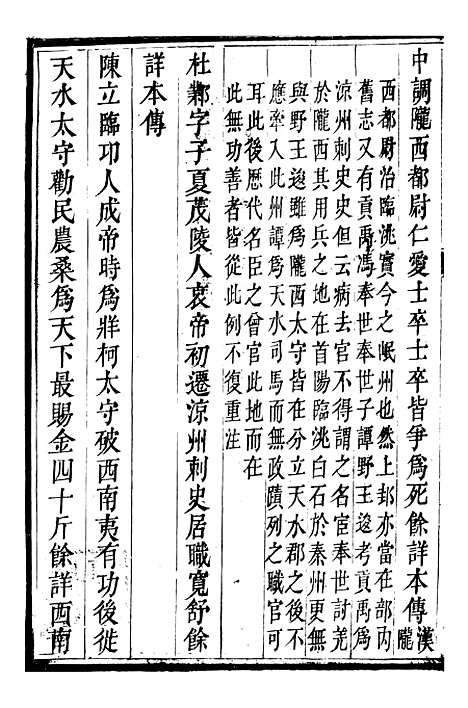 中調隴西都尉仁愛士卒士卒皆爭爲死餘詳本傳漢隴
西都尉治臨洮實今之岷州也然上邽亦當在部內
舊志又有貢禹馮奉世奉世子譚野王逡考貢禹爲
凉州刺史史但云病去官不得謂之名宦奉世討羌
於隴西其用兵之地在首陽臨洮白石於秦州更無
與野王逡雖爲隴西太守皆在分立天水郡之後不
應牽入此州譚爲天水司馬而無政蹟列之職官可
耳此後歷代名臣之曾官此地而在
此無功善者皆從此例不復重注
杜鄴字子夏茂陵人哀帝初遷凉州刺史居職寬舒餘
詳本傳
陳立臨邛人成帝時爲牂柯太守破西南夷有功後徙
天水太守勸民農桑爲天下最賜金四十斤餘詳西南